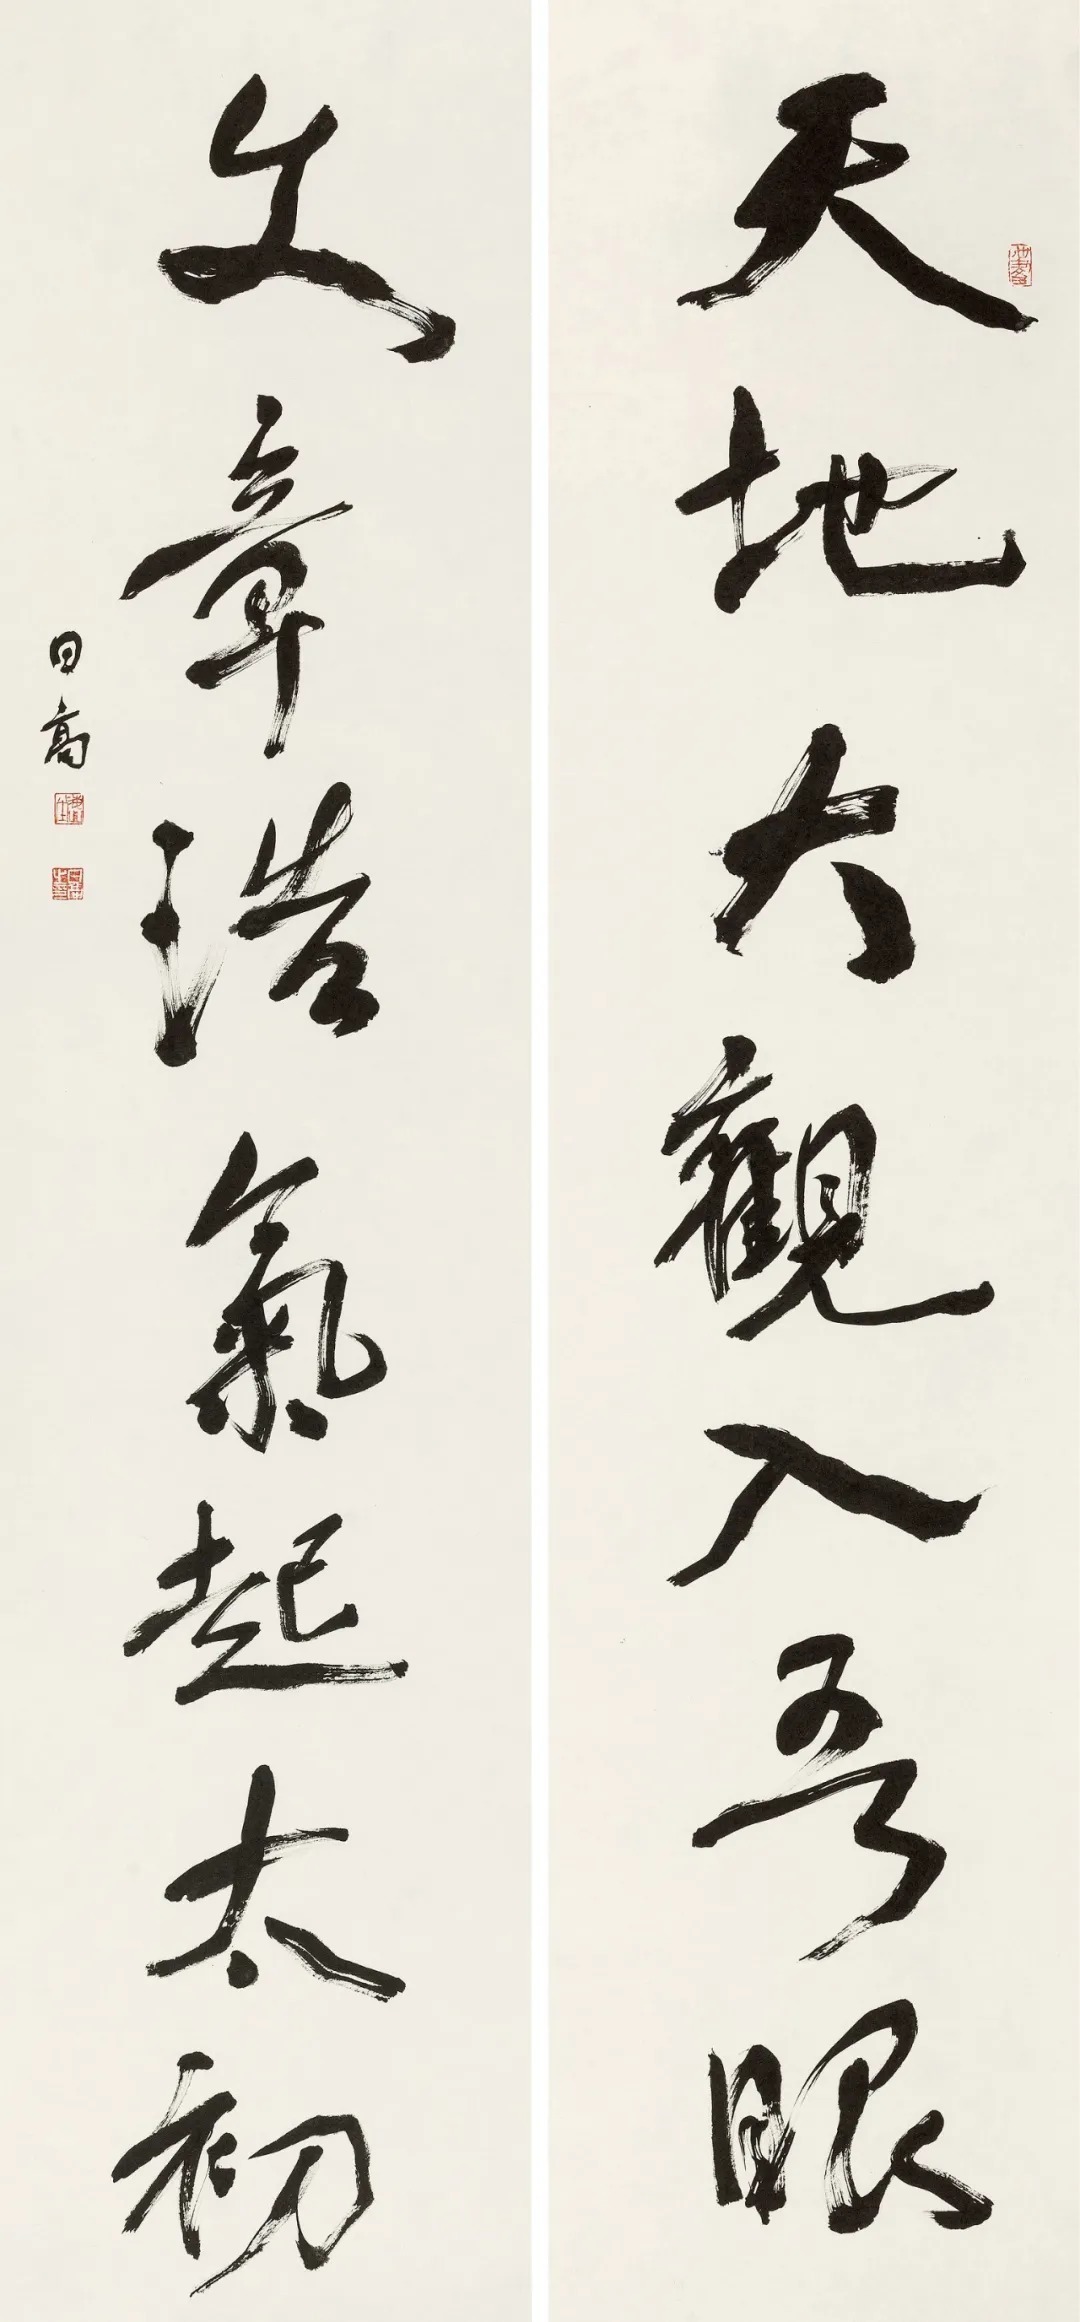 天地大觀入吾眼
文章浩氣起太初
日高